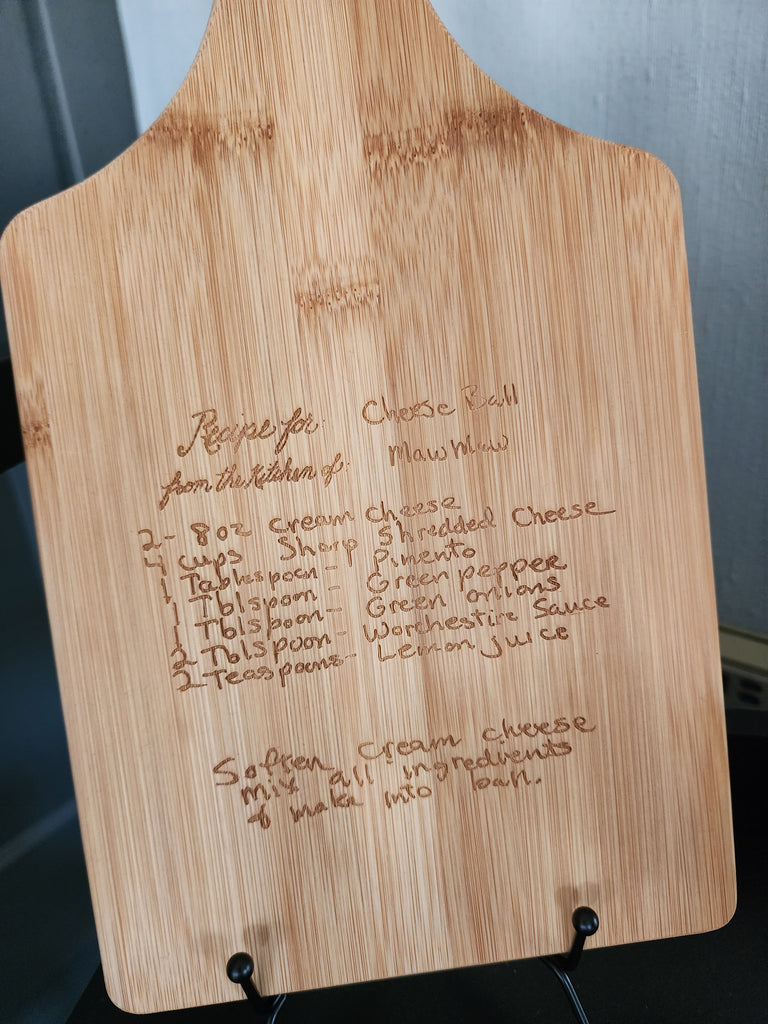 Recipe for: Cheese Ball
from the Kitchen of: MawMaw
2- 8oz cream cheese
4 cups Sharp Shredded Cheese
1 Tablespoon- Pimento
1 Tblspoon- Green pepper
1 Tblspoon- Green onions
2 Tblspoon- Worchestire Sauce
2 Teaspoons- Lemon juice
Soften cream cheese
mix all ingredients
& make into ball.